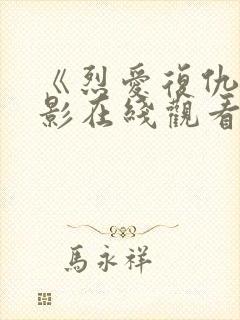 《烈愛復仇
影在綫觀看
馬永祥